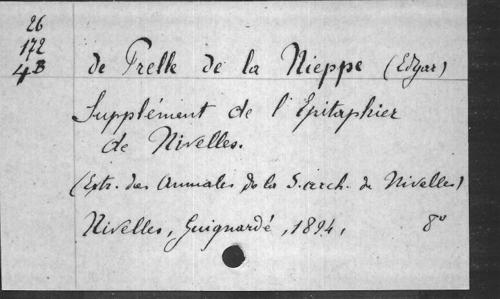 26
172
4B
de Prelle de la Nieppe (Edgar)
Supplément de l'Epitaphier
de Nivelles.
(Extr. des Annales de la S. arch. de Nivelles)
Nivelles, Guignardé, 1894, 8°